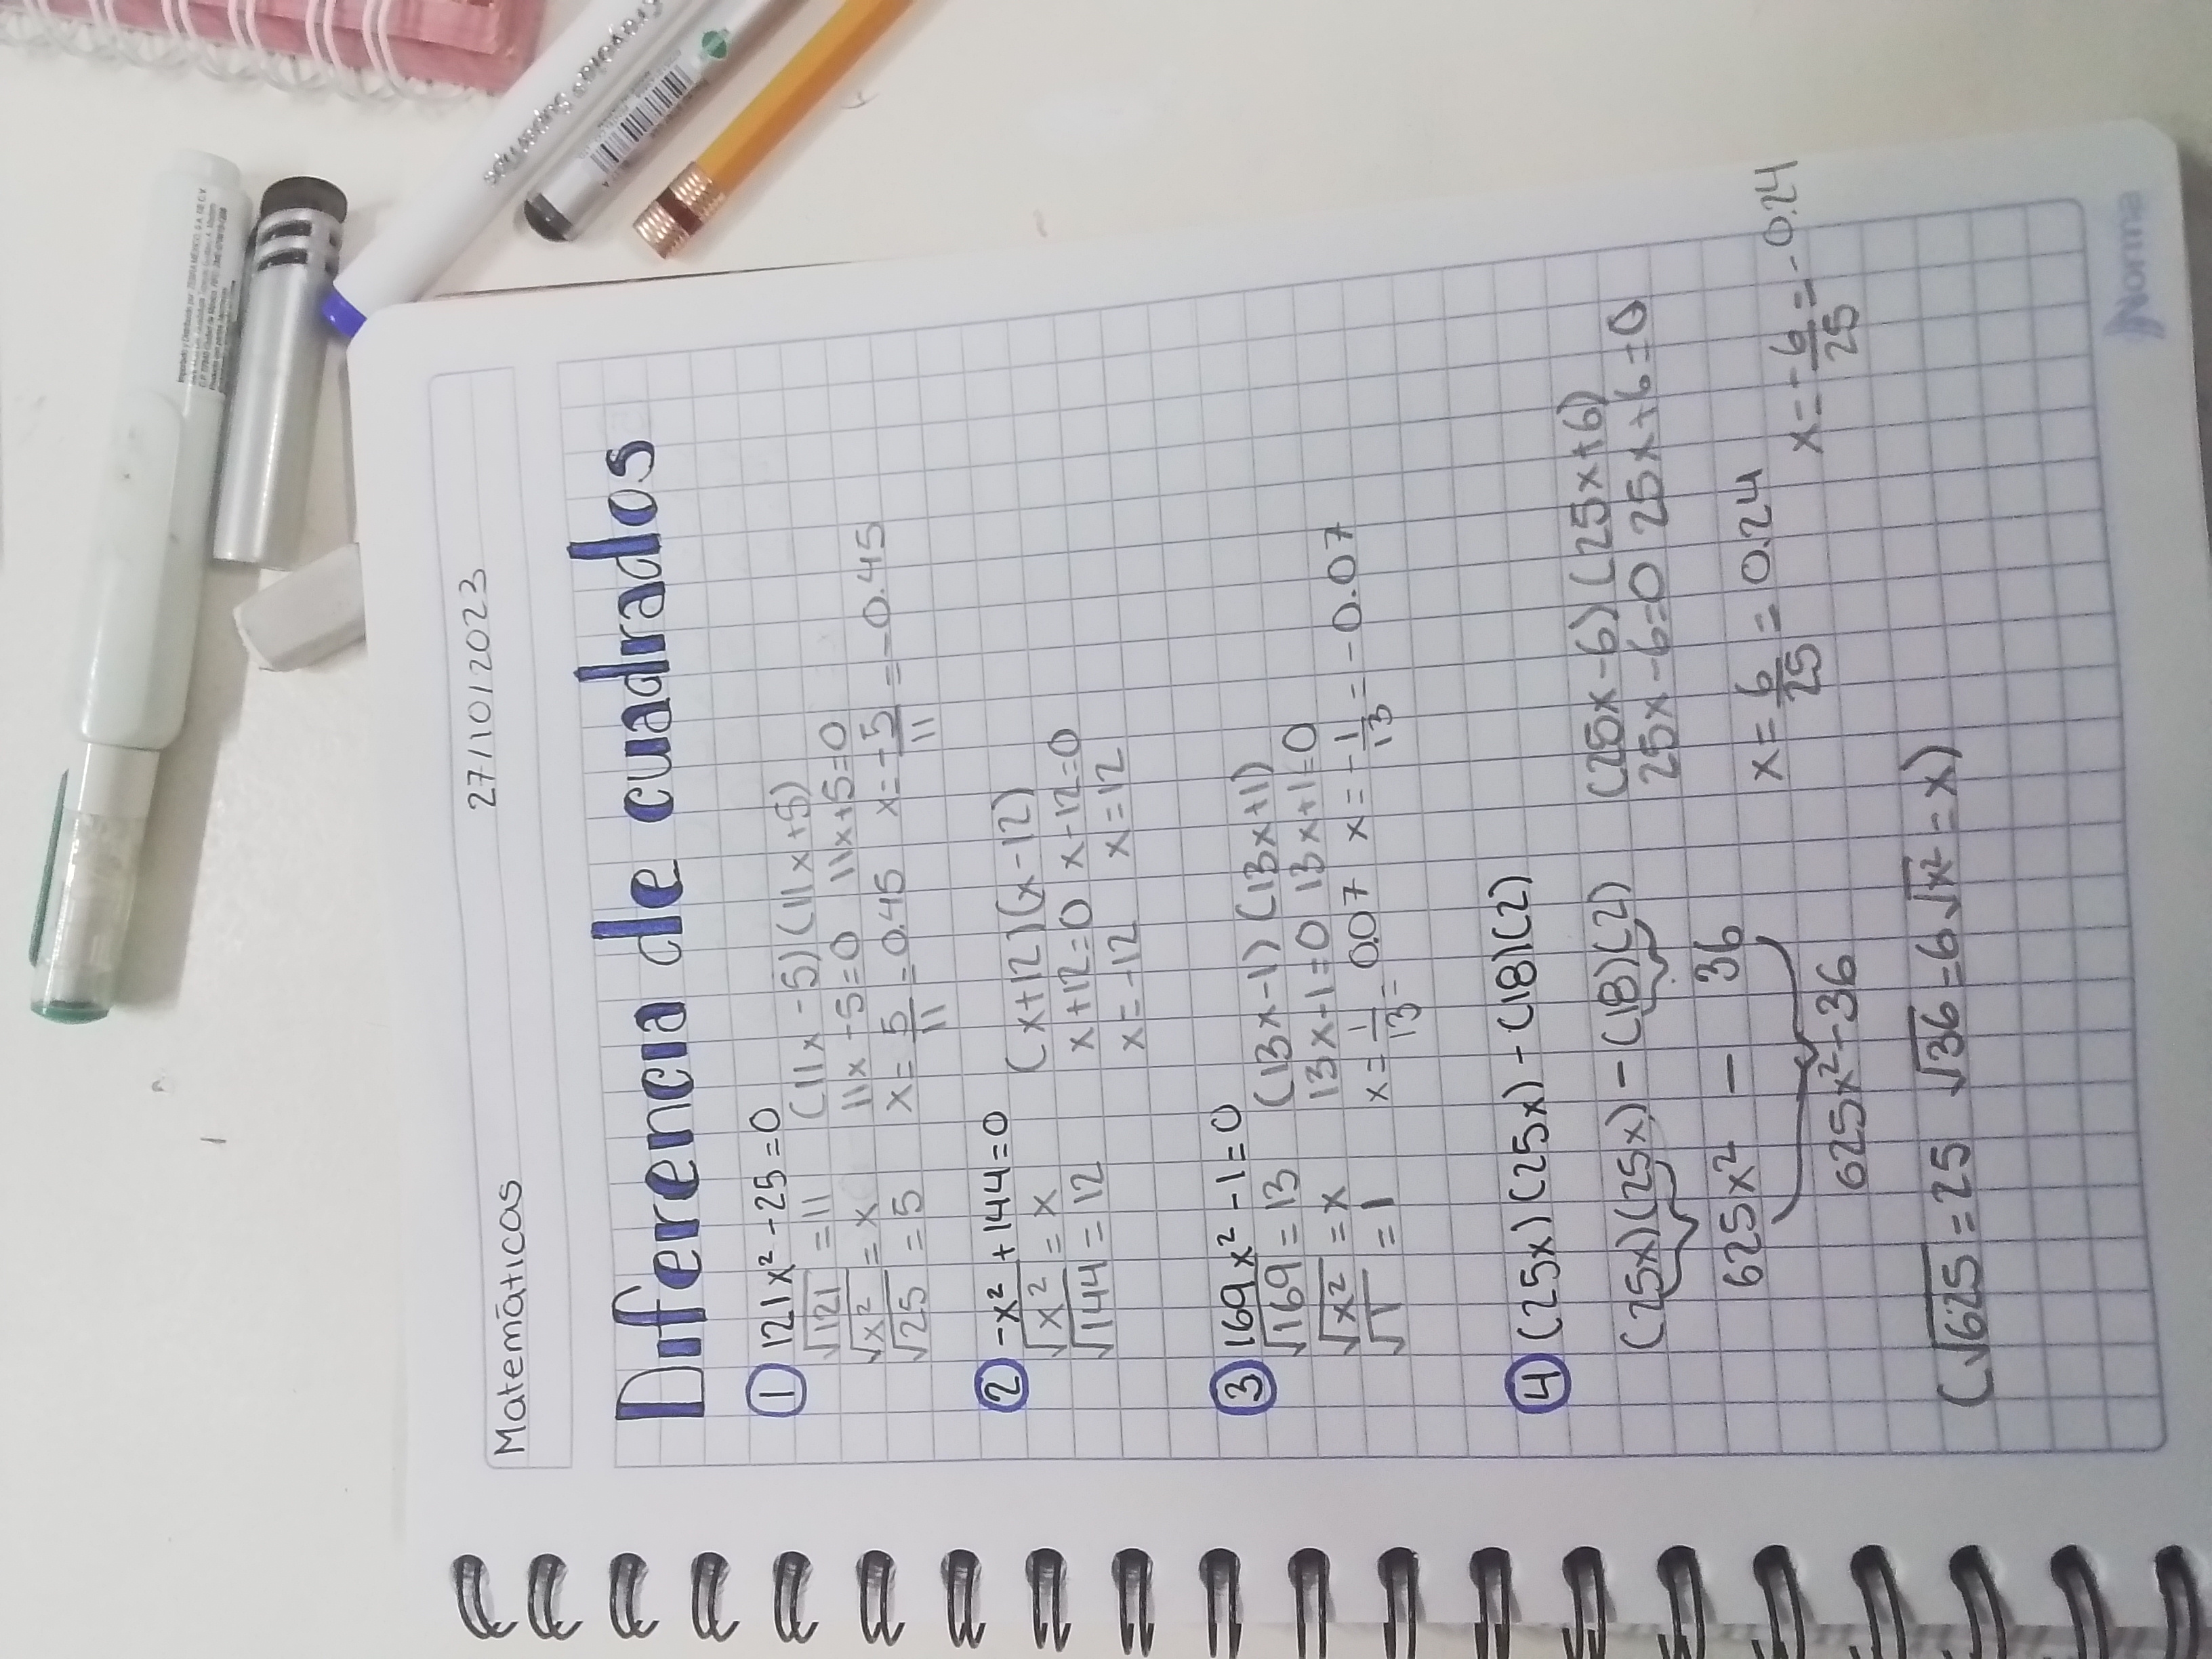 Matemáticas 27/10/2023
Diferencia de cuadrados
① 121x² - 25 = 0
√121 = 11 (11x - 5)(11x + 5)
√x² = x 11x - 5 = 0 11x + 5 = 0
√25 = 5 x = 5/11 = 0.45 x = -5/11 = -0.45
② -x² + 144 = 0
√x² = x (x + 12)(x - 12)
√144 = 12 x + 12 = 0 x - 12 = 0
x = -12 x = 12
③ 169x² - 1 = 0
√169 = 13 (13x - 1)(13x + 1)
√x² = x 13x - 1 = 0 13x + 1 = 0
√1 = 1 x = 1/13 = 0.07 x = -1/13 = -0.07
④ (25x)(25x) - (18)(2)
(25x)(25x) - (18)(2) (25x - 6)(25x + 6)
25x - 6 = 0 25x + 6 = 0
625x² - 36
x = 6/25 = 0.24 x = -6/25 = -0.24
625x² - 36
(√625 = 25 √36 = 6 √x² = x)
Norma
Crayola® Supertips